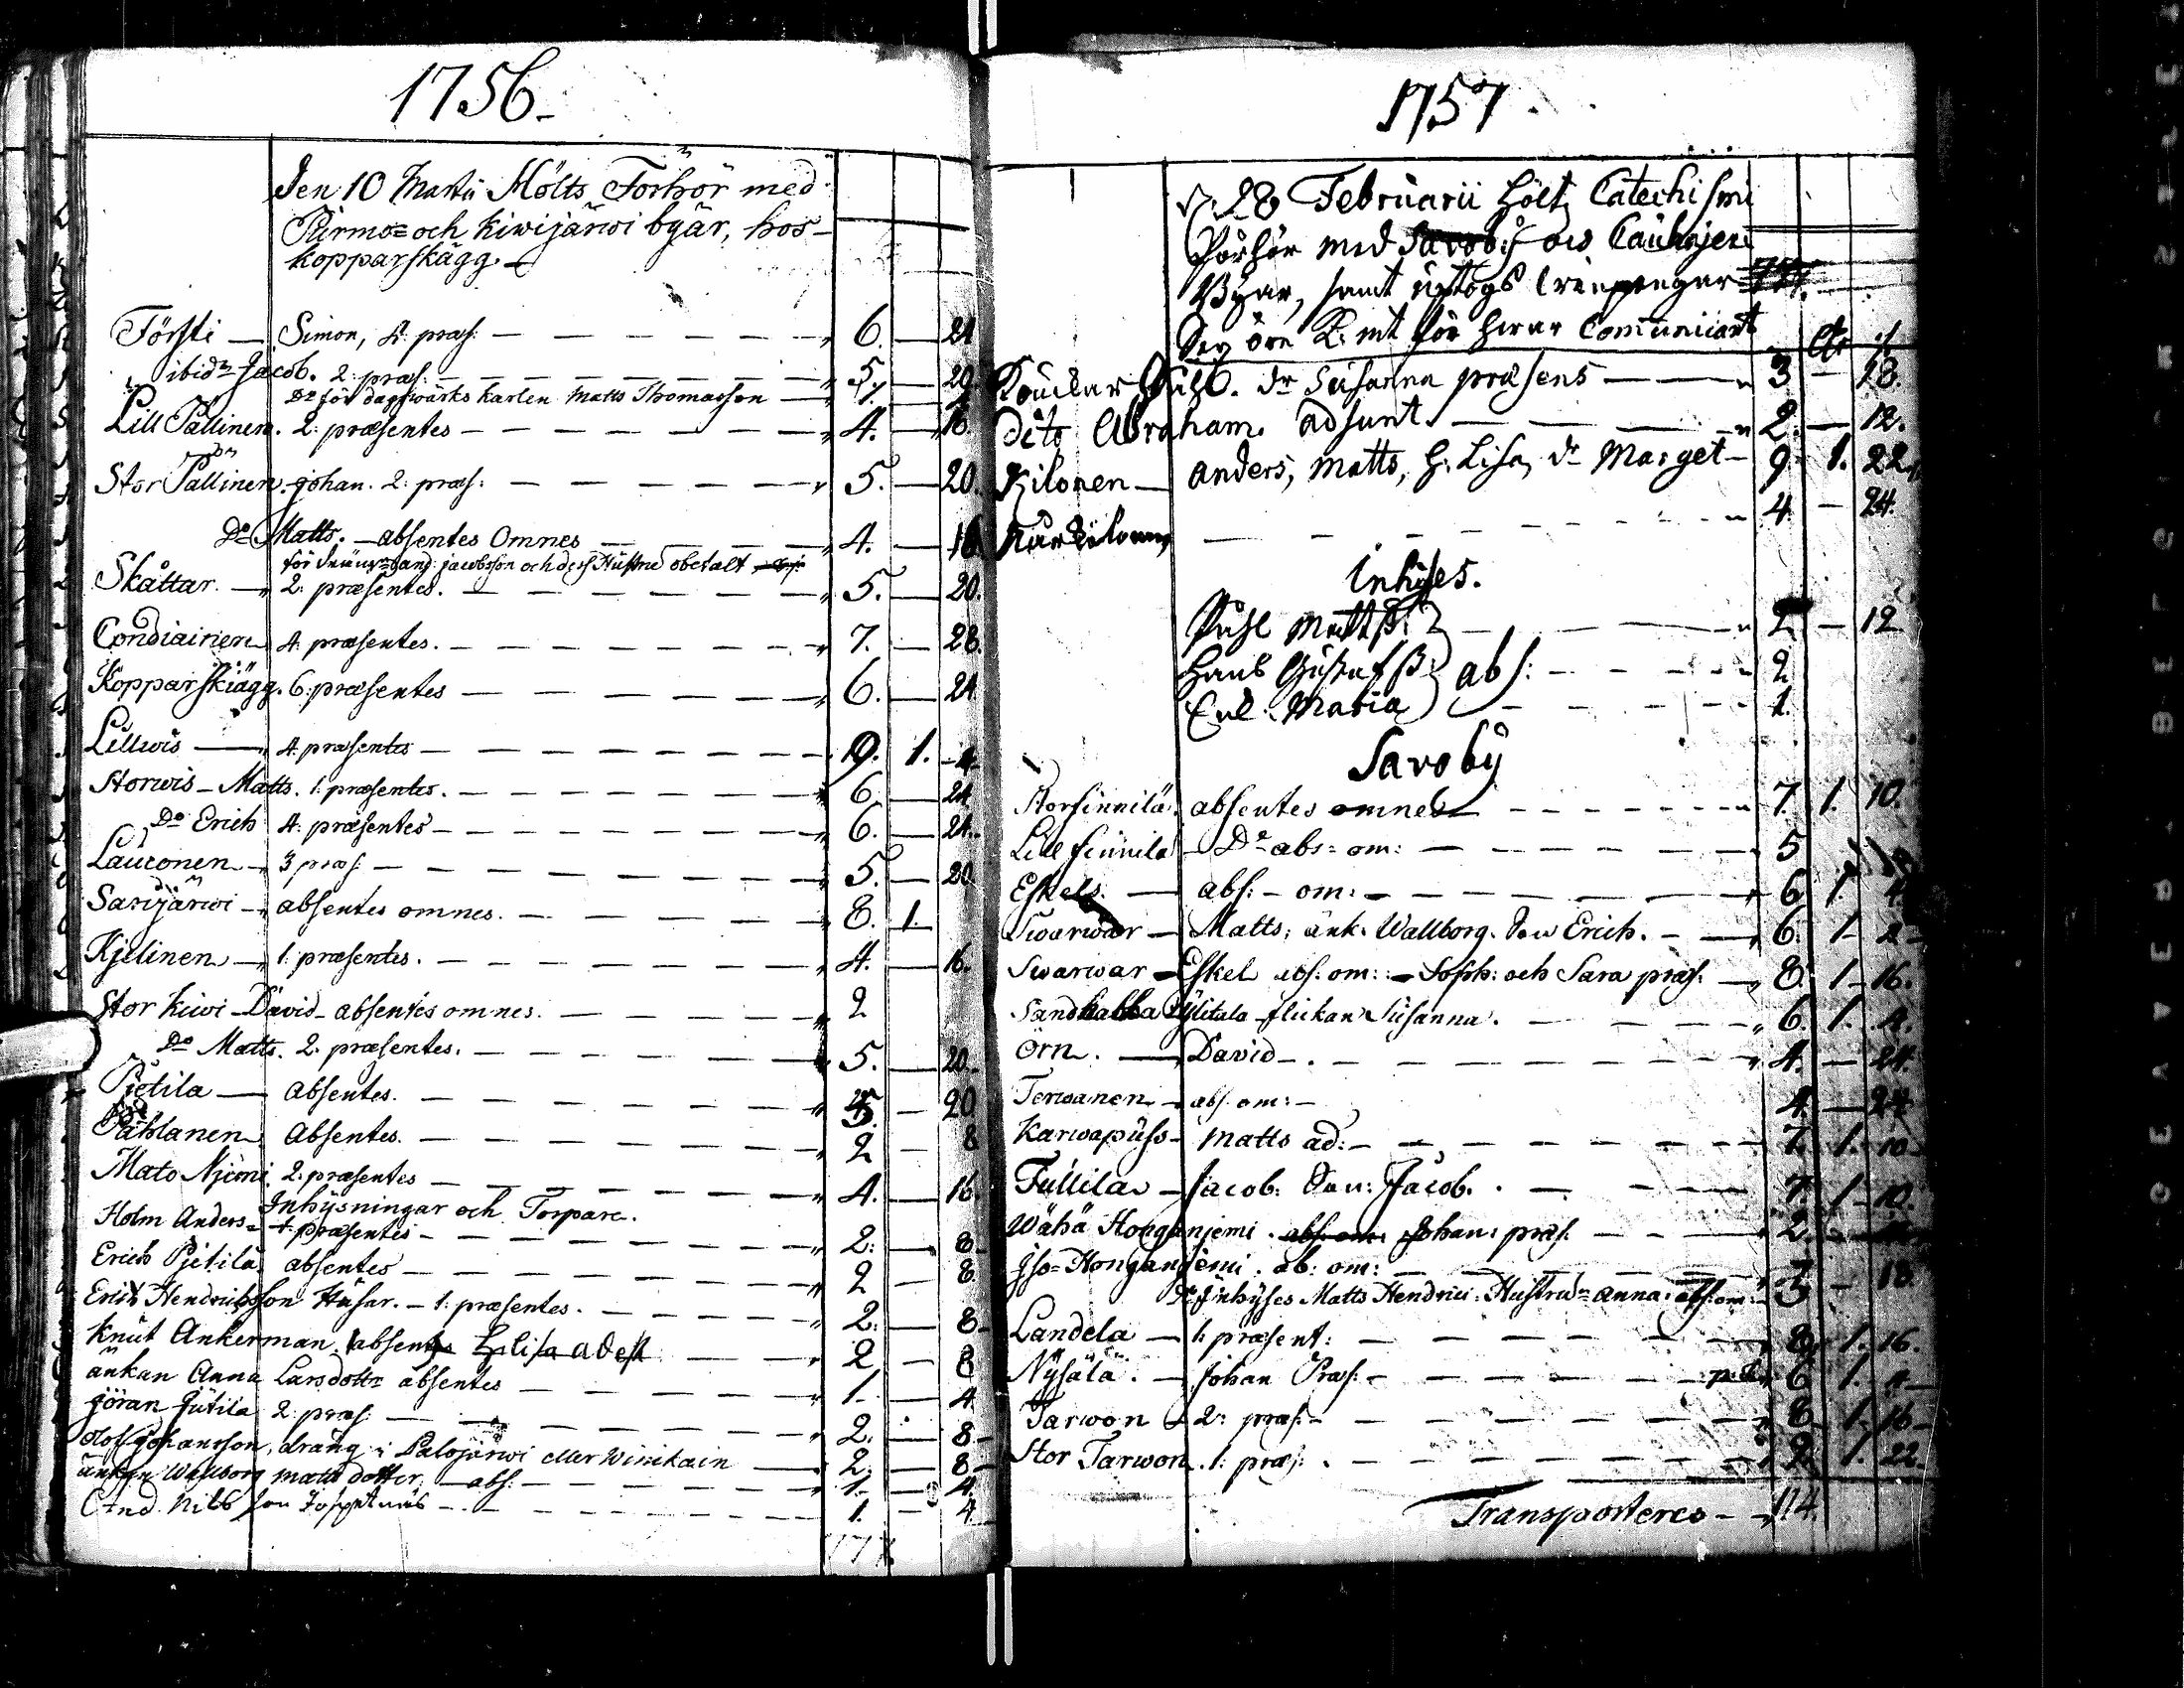 1756.
Den 10 Martii Hölts Förhör med
Pürmo= och Kiwijärwi byar, hos
kopparskägg.
Försti — Simon, 4: præs: 6. — 24
ibid:m Jacob. 2: præs: 5. — 20.
Do för dagswärks karlen Matts Thomasson 1.
Lill Pällinen. 2: præsentes 4. — 16.
Stor Pällinen. Johan. 2: præs: 5. — 20.
Do Matts. — absentes Omnes 4. — 16.
för jacobsson och dess Hustru obetalt
Skåttar. — 2: præsentes. 5. — 20.
Condiainen 4: præsentes. 7. — 28.
Kopparskiägg. 6: præsentes 6. — 24
Lillwis — 4: præsentes 9. 1. 4
Storwis — Matts. 1: præsentes. 6. — 24
Do Erich 4: præsentes 6. — 24.
Lauronen — 3 præs 5. — 20
Sarijärwi — absentes omnes. 8. 1.
Kjelinen — 1: præsentes. 4. — 16.
Stor Kiwi — David — absentes omnes. 2
Do Matts. 2: præsentes. 5. — 20.
Pietila — absentes. 5. — 20
Pählanen Absentes. 2 — 8
Mato Njemi. 2: præsentes 4. — 16
Inhysningar och Torpare.
Holm Anders = 1: præsentes 2: — 8
Erich Pjetilä absentes 2 — 8
Erich Hendricksson Husar. — 1: præsentes. 2: — 8
Knut Ankerman. absent H. Lisa adest 2 — 8
änkan Anna Larsdottr absentes 1 — 4
Göran Jütila 2: præs: 2. — 8
Olof Johansson, dräng i Palojärwi eller Winikain 2: — 8
änkan Wallborg Matts dotter. — abs: 1. — 4.
And. Nils son 1. — 4
1757.
D. 28 Februarii hölts Catechismi
Förhör med Savoby och
Byar, samt uptogs
Sex öre K: mt för hwar Communicant
Susanna præsens 3 — 18.
Dito Abraham. adsunt. 2. — 12.
Kilonen — Anders, Matts, H: Lisa, Dr Marget 9. 1. 22.
4 — 24.
Inhyses.
Matts 2 — 12
Hans Gustafs 2
Maria abs: 1.
Savoby
Storfinnilä. absentes omnes 7. 1. 10.
Lill finnila Do abs: om: 5
Eskels. — abs: — om: 6 1. 4.
Swarwar — Matts: änk. Wallborg. Son Erich. 6. 1. 2
Swarwar — Eskel abs: om: — Soph: och Sara præs. 8. 1. 16.
Sandkabba flickan Susanna. 6. 1. 4.
Örn. — David 4. — 24.
Terwanen — abs om: 4 — 24
Karwapüss — Matts ad: 7. 1. 10
Tüllila — Jacob: Son: Jacob. 7 1. 10.
Wähä Honganjemi. abs: om: Johan: præs: 2
Iso= Honganjemi. ab: om: 3 — 18
Do Inhyses Matts Hendrici: Hustrun Anna: abs: om:
Landela — 1: præsent: 8. 1. 16.
Nysätä. — Johan Præs: 6 1. 4
Tarwon — 2: præs: 8 1. 16
Stor Tarwon. 1: præs: 9 1. 22
Transporteres 114